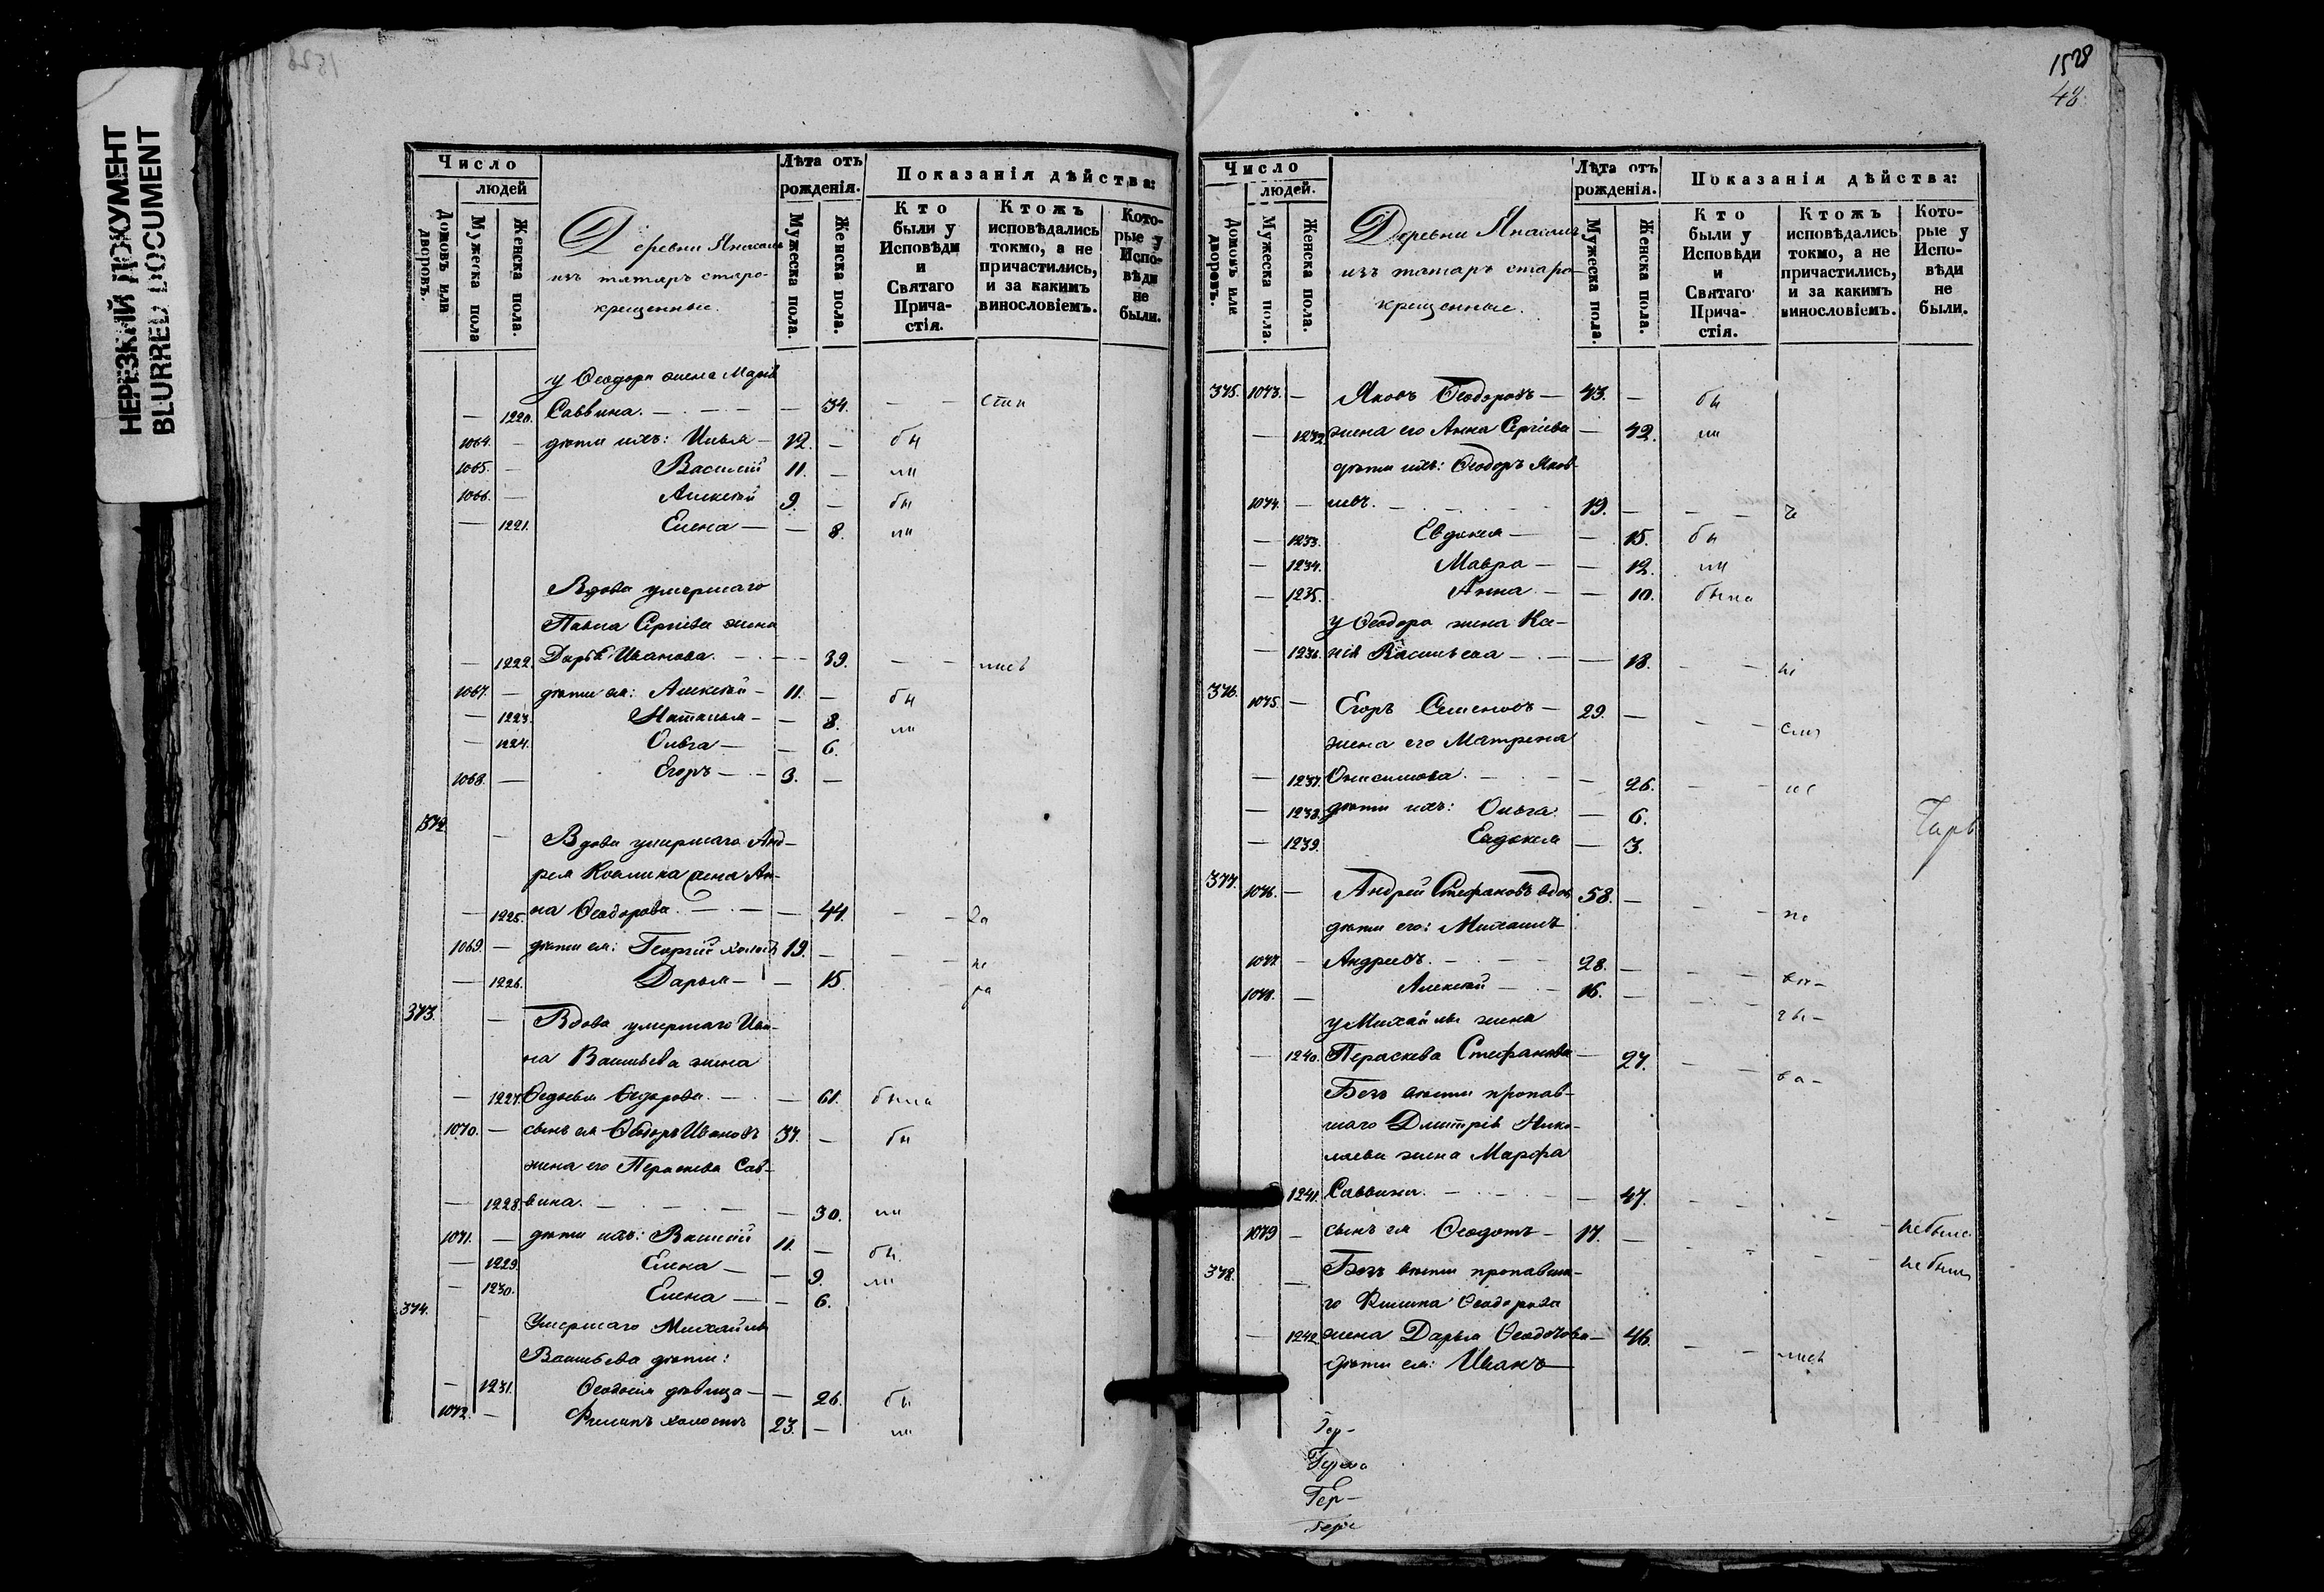 НЕРЕЗКИЙ ДОКУМЕНТ
BLURRED DOCUMENT
Число
людей
Домовъ или дворовъ.
Мужеска пола
Женска пола.
Деревни
изъ татаръ старо-
крещенные.
Лѣта отъ
рожденія.
Мужеска пола.
Женска пола.
Показанія дѣйства:
Кто
были у
Исповѣди
и
Святаго
Прича-
стія.
Ктожъ
исповѣдались
токмо, а не
причастились,
и за какимъ
винословіемъ.
Кото-
рые у
Испо-
вѣди
не
были.
у Ѳеодора жена Марія
— 1220. Саввина. — — 34. — —
1064. — дѣти ихъ: Илья — 12. — бы
1065. — Василій 11. — ли
1066. — Алексѣй 9. — бы
— 1221. Елена — — 8. ли
Вдова умершаго
Павла Сергѣева жена
— 1222. Дарья Иванова. — — 39. — —
1067. — дѣти ея: Алексѣй — 11. — бы
— 1223. Наталья — — 8. ли
— 1224. Ольга — — 6.
1068. — Егоръ — 3. —
372. — Вдова умершаго Анд-
рея жена Ан-
— 1225. на Ѳеодорова. — — 44. — —
1069. — дѣти ея: Георгій холостъ 19. — — — не
— 1226. Дарья — — 15.
373. — Вдова умершаго Ива-
на Васильева жена
— 1227. Ѳедосья Ѳедорова. — — 61. была
1070. — сынъ ея Ѳеодоръ Ивановъ 37. — бы
жена его Параскева Сав-
— 1228. вина. — — 30. ли
1071. — дѣти ихъ: Василій 11. — бы
— 1229. Елена — — 9. ли
— 1230. Елена — — 6.
374. — Умершаго Михайлы
Васильева дѣти:
— 1231. Ѳеодосія дѣвица — — 26. бы
1072. — Филипъ холостъ 23. — ли
1528
48
Число
людей.
Домовъ или дворовъ.
Мужеска пола.
Женска пола.
Деревни
изъ татаръ старо-
крещенные.
Лѣта отъ
рожденія.
Мужеска пола.
Женска пола.
Показанія дѣйства:
Кто
были у
Исповѣди
и
Святаго
Прича-
стія.
Ктожъ
исповѣдались
токмо, а не
причастились,
и за какимъ
винословіемъ.
Кото-
рые у
Испо-
вѣди
не
были.
375. 1073. — Яковъ Ѳеодоровъ — 43. — бы
— 1232. жена его Анна Сергіева — 42. ли
дѣти ихъ: Ѳеодоръ Яков-
1074. — левъ. — 19. — — —
— 1233. Евдокея — — 15. бы
— 1234. Мавра — — 12. ли
— 1235. Анна — — 10. была
у Ѳеодора жена Ксе-
— 1236. нія Васильева — — 18. — —
376. 1075. — Егоръ Семеновъ — 29. — — —
жена его Матрена
— 1237. Онисимова. — — 26. — —
— 1238. дѣти ихъ: Ольга. — 6.
— 1239. Евдокея — 3.
377. 1076. — Андрей Стефановъ вдов. 58. — — — по
дѣти его: Михаилъ
1077. — Андреевъ. — 28. — — —
1078. — Алексѣй — 16. — — —
у Михайлы жена
— 1240. Параскева Стефанова — 27. — —
Безъ вѣсти пропав-
шаго Дмитрія Нико-
лаева жена Марфа
1241. Саввина. — — 47. — — — не была
1079 — сынъ ея Ѳеодотъ — 17. — — — не былъ
378. — Безъ вѣсти пропавша-
го Филипа Ѳеодорова
— 1242. жена Дарья — 46. — —
дѣти ея: Иванъ —